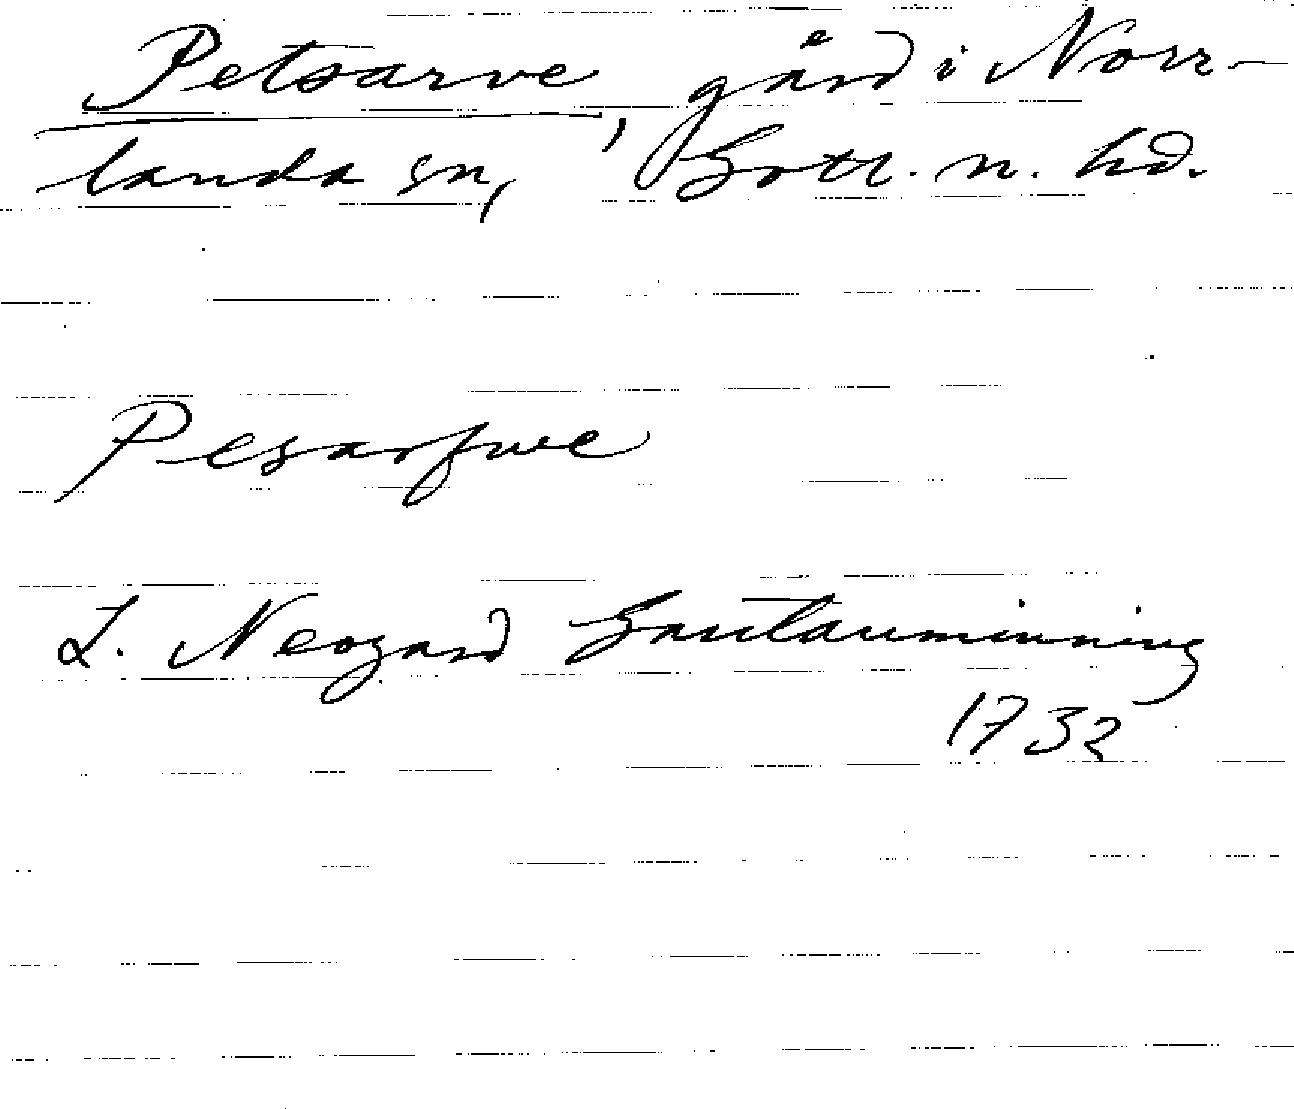 Petsarve, gård i Norr-
landa sn, Gotl. n. hd.
Pesarfwe
L. Neogard Gautauminning
1732